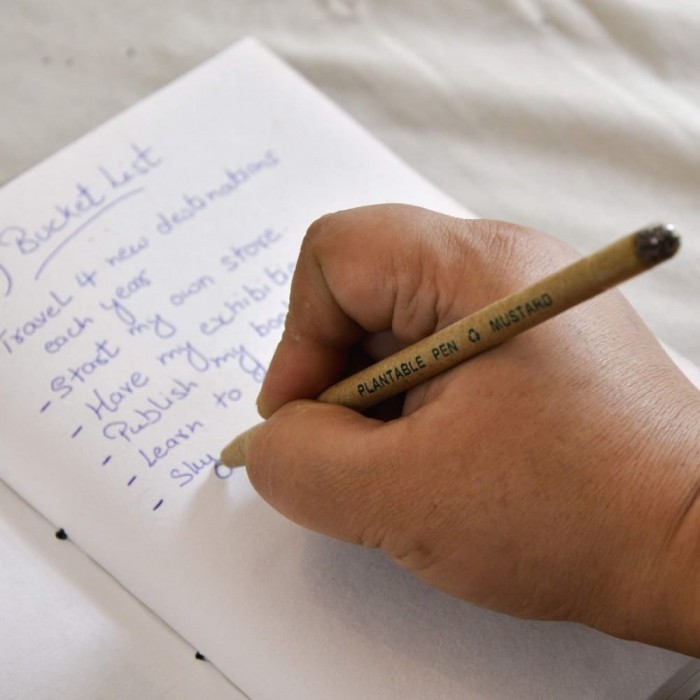 Bucket List
Travel 4 new destinations
each year
- Start my own store
- Have my
- Publish my
- Learn to
-
PLANTABLE PEN ♻ MUSTARD